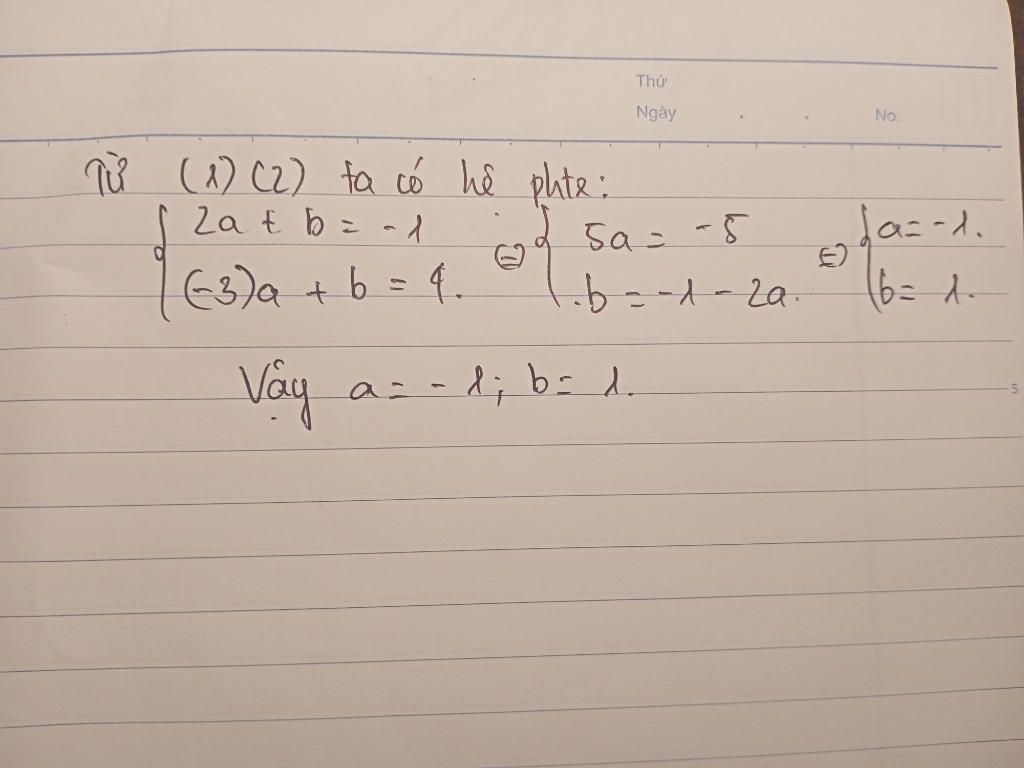 Thứ
Ngày . . No.
Từ (1) (2) ta có hê phtr:
{ 2a + b = -1 <=> { 5a = -5 <=> { a = -1.
{ (-3)a + b = 4. { b = -1 - 2a. { b = 1.
Vậy a = -1; b = 1.
5